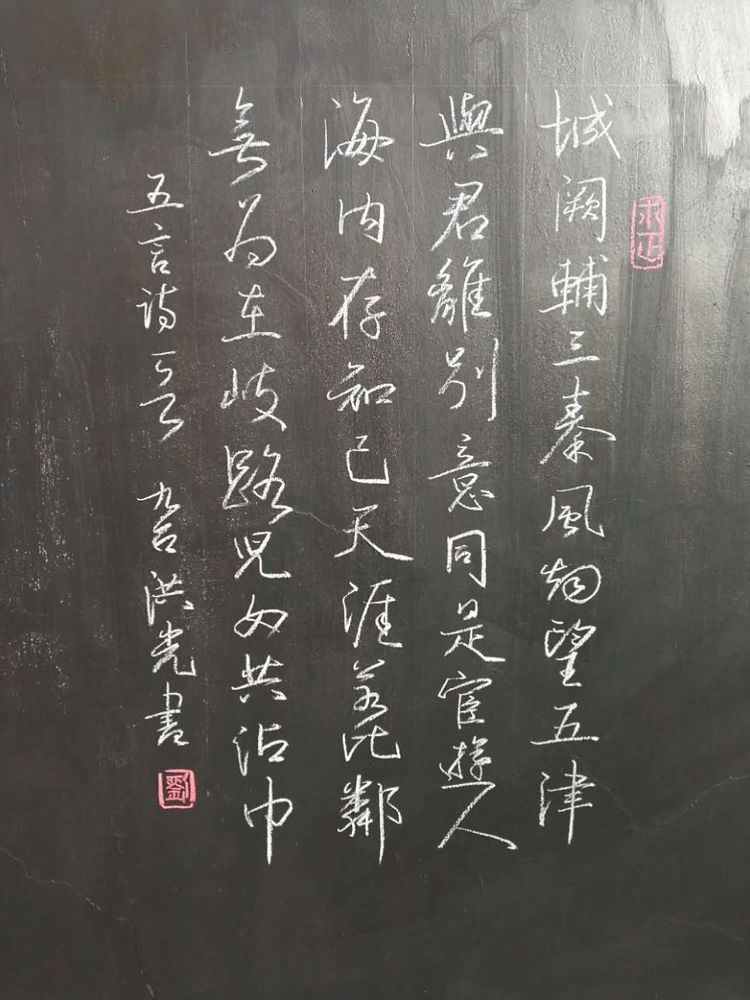 求正
城闕輔三秦風烟望五津
與君離別意同是宦遊人
海內存知己天涯若比鄰
無為在岐路兒女共沾巾
五言诗一首 洪光書
劉